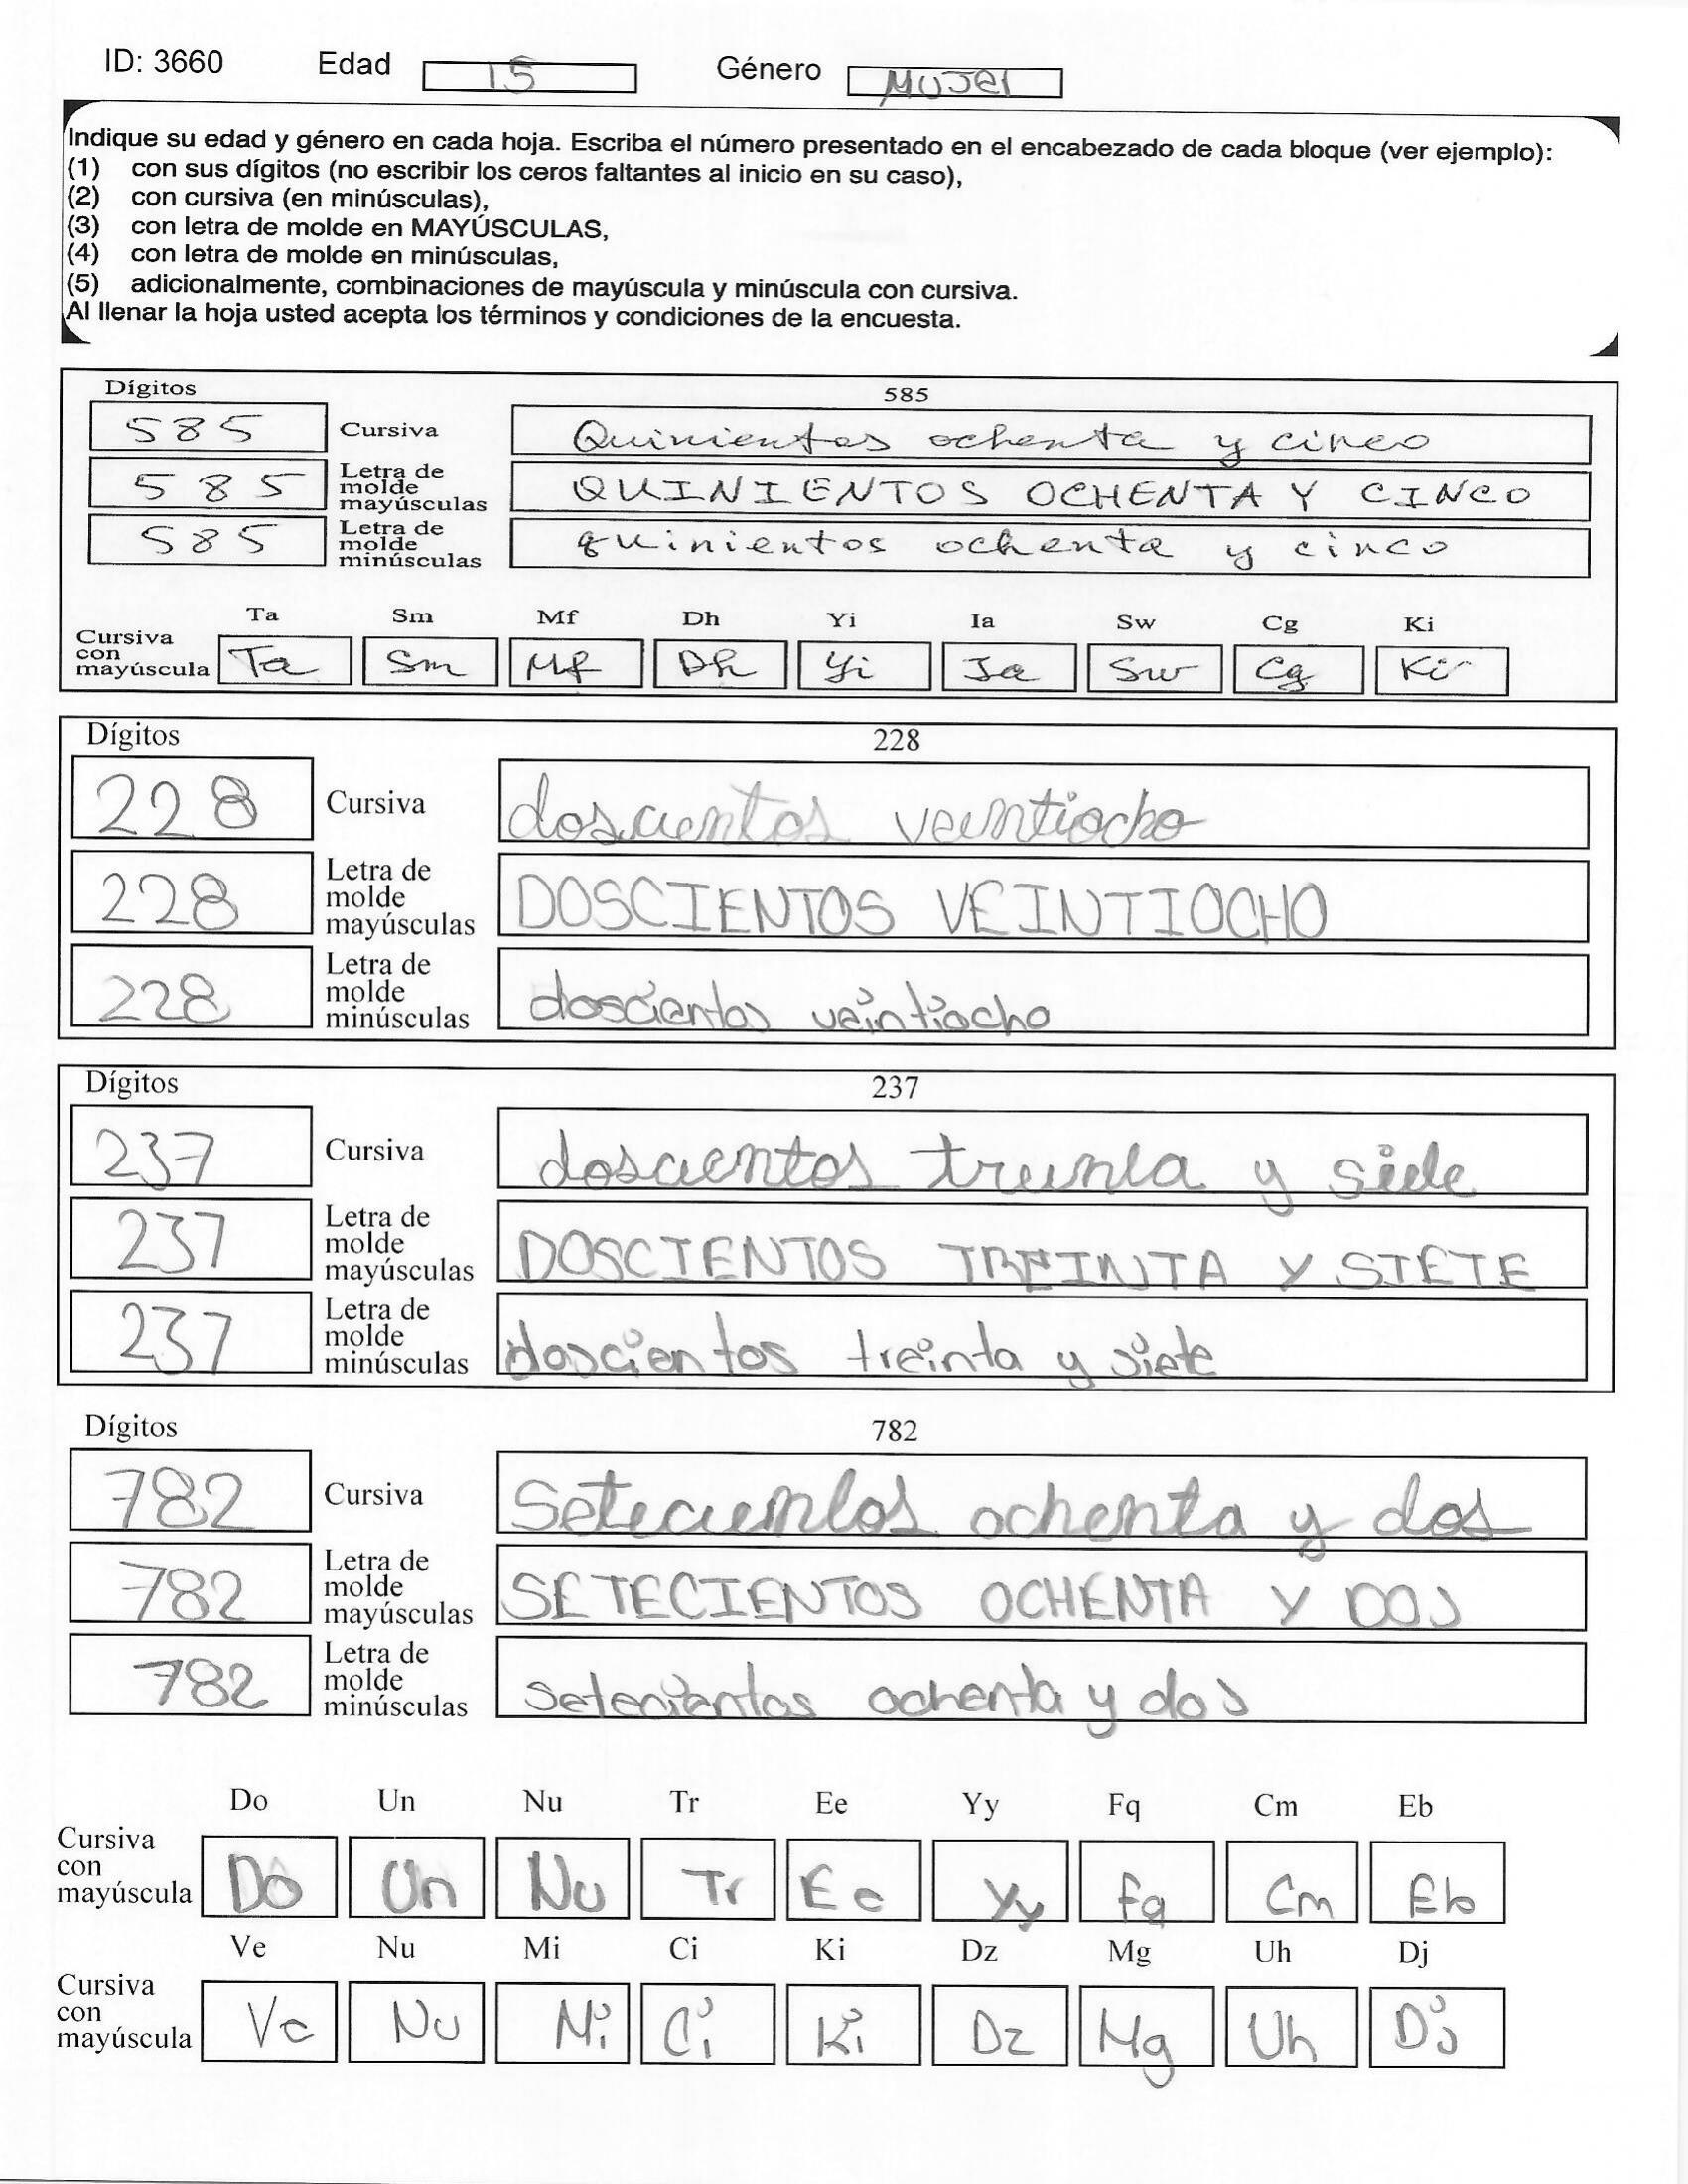 ID: 3660 Edad 15 Género Mujer
Indique su edad y género en cada hoja. Escriba el número presentado en el encabezado de cada bloque (ver ejemplo):
(1) con sus dígitos (no escribir los ceros faltantes al inicio en su caso),
(2) con cursiva (en minúsculas),
(3) con letra de molde en MAYÚSCULAS,
(4) con letra de molde en minúsculas,
(5) adicionalmente, combinaciones de mayúscula y minúscula con cursiva.
Al llenar la hoja usted acepta los términos y condiciones de la encuesta.
Dígitos 585
585 Cursiva Quinientos ochenta y cinco
585 Letra de molde mayúsculas QUINIENTOS OCHENTA Y CINCO
585 Letra de molde minúsculas quinientos ochenta y cinco
Ta Sm Mf Dh Yi Ia Sw Cg Ki
Cursiva con mayúscula Ta Sm Mf Dh Yi Ia Sw Cg Ki
Dígitos 228
228 Cursiva doscientos veintiocho
228 Letra de molde mayúsculas DOSCIENTOS VEINTIOCHO
228 Letra de molde minúsculas doscientos veintiocho
Dígitos 237
237 Cursiva doscientos treinta y siete
237 Letra de molde mayúsculas DOSCIENTOS TREINTA Y SIETE
237 Letra de molde minúsculas doscientos treinta y siete
Dígitos 782
782 Cursiva Setecientos ochenta y dos
782 Letra de molde mayúsculas SETECIENTOS OCHENTA Y DOS
782 Letra de molde minúsculas setecientos ochenta y dos
Do Un Nu Tr Ee Yy Fq Cm Eb
Cursiva con mayúscula Do Un Nu Tr Ee Yy Fq Cm Eb
Ve Nu Mi Ci Ki Dz Mg Uh Dj
Cursiva con mayúscula Ve Nu Mi Ci Ki Dz Mg Uh Dj